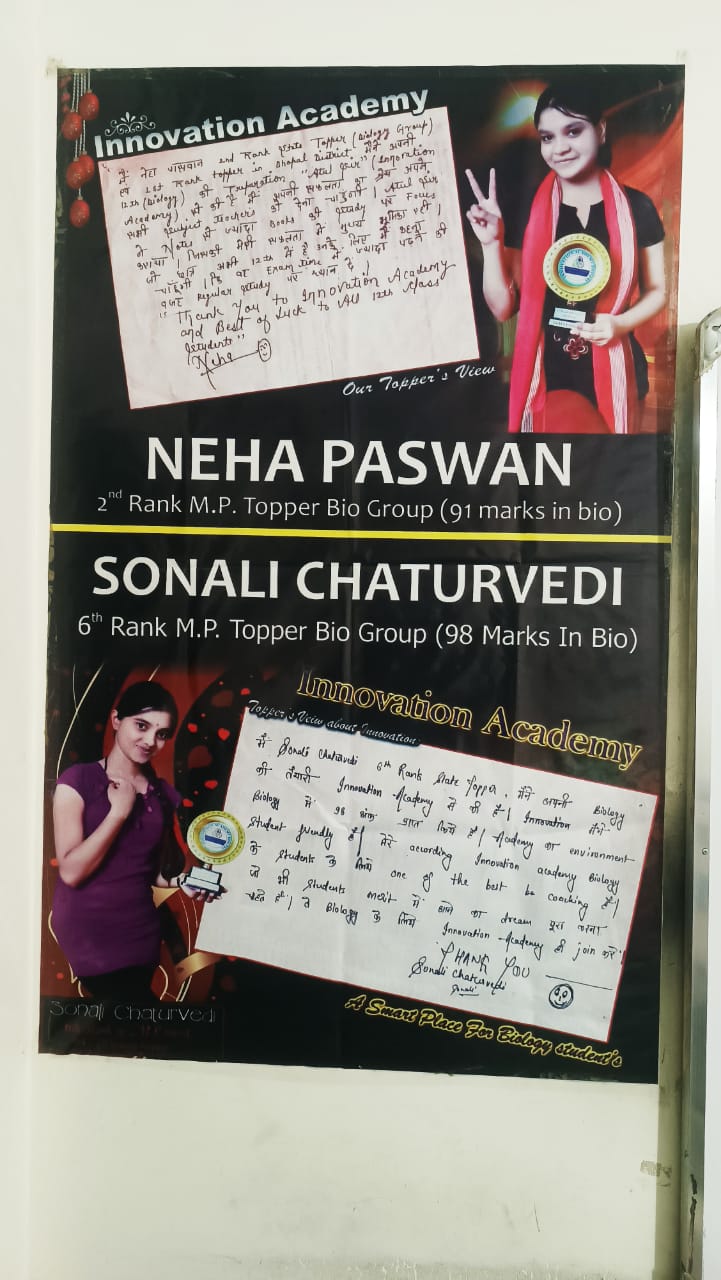 Innovation Academy
मैं नेहा पासवान 2nd Rank State Topper (Biology Group)
एवं 1st Rank topper in Bhopal District. मैंने अपनी
12th (Biology) की Preparation "Atul Sir" (Innovation
Academy) से की है मैं अपनी सफलता का श्रेय अपने
सभी Subject Teachers को देना चाहूँगी। Atul Sir
ने Notes से ज्यादा Books की Study पर Focus
कराया। जिसकी मेरी सफलता में मुख्य भूमिका रही।
जो छात्र अभी 12th में हैं उनके लिए मैं कहना
चाहूँगी कि वह Exam time में ज्यादा पढ़ने की
वजह Regular Study पर ध्यान दे।
"Thank You to Innovation Academy
and Best of Luck to All 12th Class
Students"
Neha
Our Topper's View
NEHA PASWAN
2nd Rank M.P. Topper Bio Group (91 marks in bio)
SONALI CHATURVEDI
6th Rank M.P. Topper Bio Group (98 Marks In Bio)
Innovation Academy
Topper's View about Innovation
मैं Sonali Chaturvedi 6th Rank State Topper, मैंने अपनी Biology
की तैयारी Innovation Academy से की है। Innovation मैंने
Biology में 98 अंक प्राप्त किये है। Academy का environment
Student friendly है। मेरे according Innovation academy Biology
के Students के लिये one of the best be coaching है।
जो भी Students merit में आने का dream पूरा करना
चहते हैं। वे Biology के लिये Innovation Academy ही join करें।
THANK YOU
Sonali Chaturvedi
Sonali
Sonali Chaturvedi
A Smart Place For Biology student's